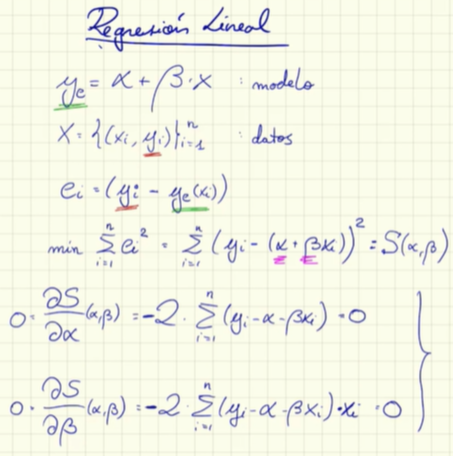 Regresión Lineal
y_e = α + β·x : modelo
X = {(x_i, y_i)}_{i=1}^{n} : datos
e_i = (y_i - y_e(x_i))
min Σ_{i=1}^{n} e_i^2 = Σ_{i=1}^{n} (y_i - (α + βx_i))^2 = S(α,β)
0 = ∂S/∂α (α,β) = -2 · Σ_{i=1}^{n} (y_i - α - βx_i) = 0
0 = ∂S/∂β (α,β) = -2 · Σ_{i=1}^{n} (y_i - α - βx_i)·x_i = 0 }